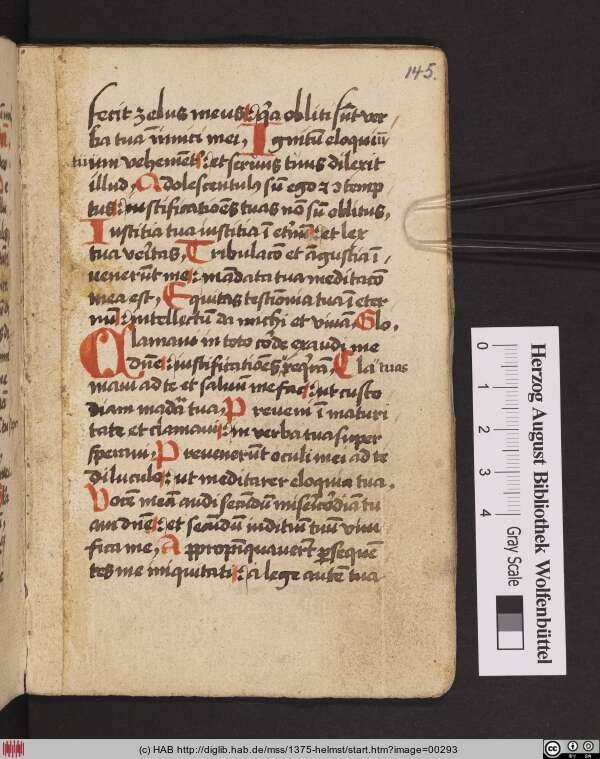 145.
fecit zelus meus: q̃a obliti sũt ver
ba tua inimici mei, Ignitũ eloquiũ
tuum vehemẽt͛: et servus tuus dilexit
illud, Adolescentul9 sũ ego z ɔtemp
tus: iustificatiões tuas nõ sũ oblitus,
Iustitia tua iustitia ĩ et͛nũ: et lex
tua veritas, Tribulaco et ãgustia ĩ
venerũt me: mãdata tua meditaco
mea est, Equitas testimonia tua ĩ eter
nũ: intellectũ da michi et vivã, Glo,
Clamavi in toto corde exaudi me
dñe: iustificatiões reqrã, Cla tuas
mavi ad te et salvũ me fac: ut custo
diam mãda tua, Preveni ĩ maturi
tate et clamavi: in verba tua super
speravi, Prevenerũt oculi mei ad te
diluculo: ut meditarer eloquia tua,
Vocẽ meã audi secũdũ misericordiã tu
am dñe: et secũdũ iuditiũ tuũ vivi
fica me, Appropinquaver̃t p̱seque
tes me iniquitati: a lege autẽ tua
0
1
2
3
4
Herzog August Bibliothek Wolfenbüttel
Gray Scale
(c) HAB http://diglib.hab.de/mss/1375-helmst/start.htm?image=00293
CC BY SA